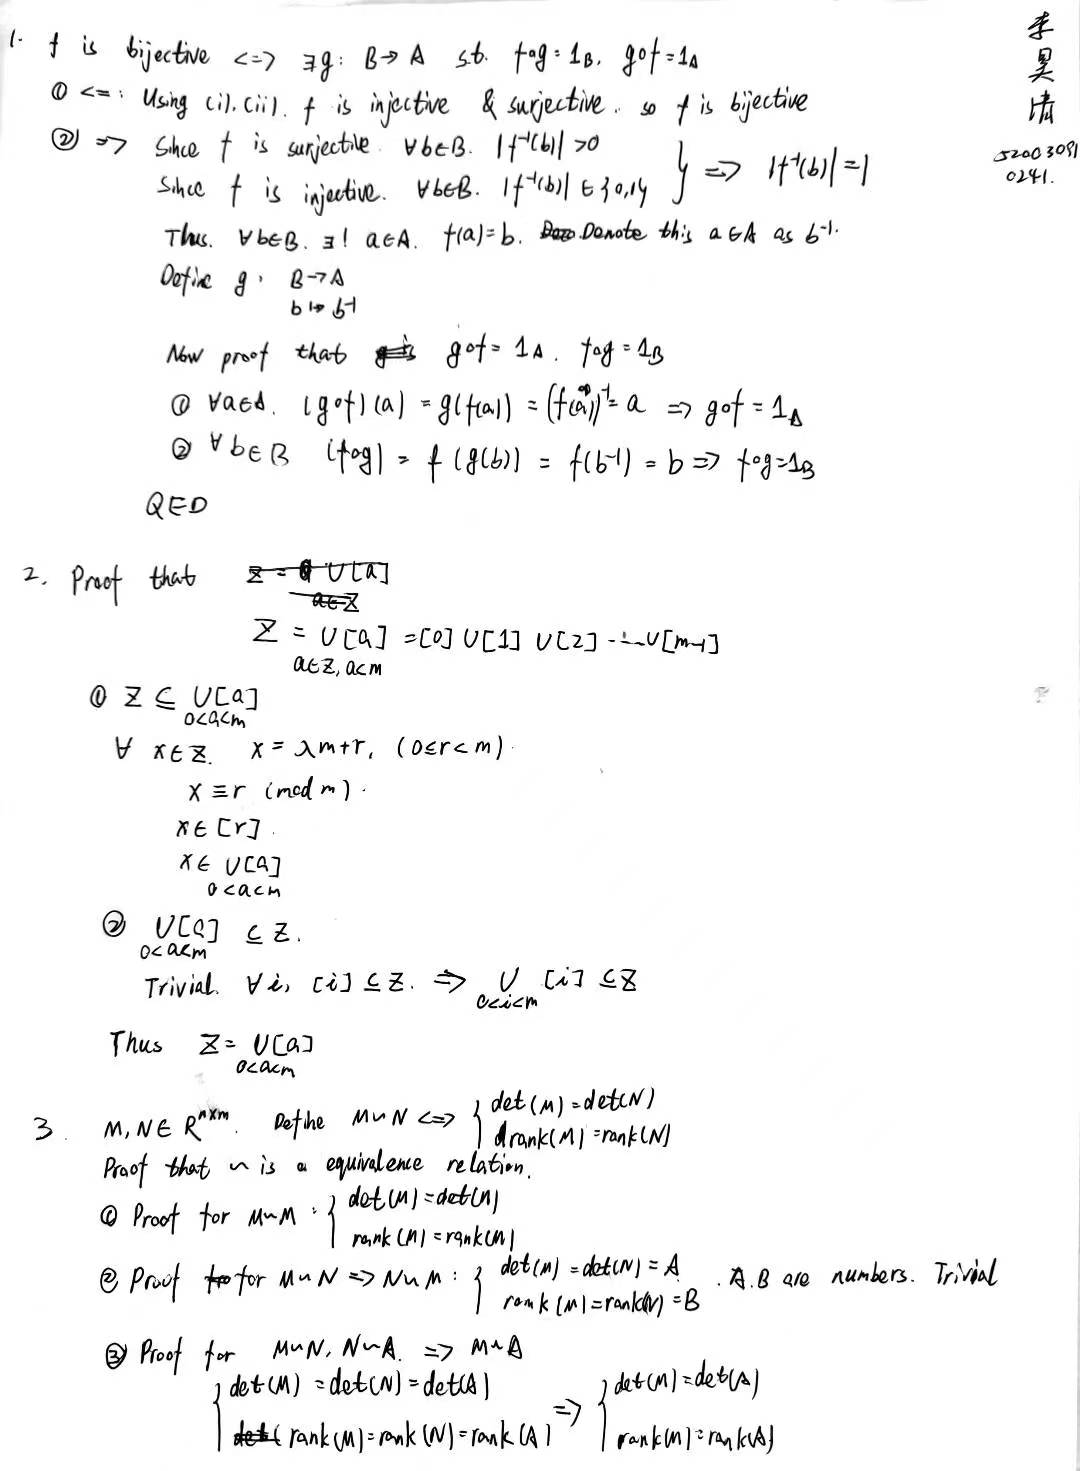 1. f is bijective <=> ∃g: B→A s.t. f∘g=1_B. g∘f=1_A
李昊
① <=: Using (i).(ii). f is injective & surjective. so f is bijective
② => Since f is surjective. ∀b∈B. |f⁻¹(b)|>0
Since f is injective. ∀b∈B. |f⁻¹(b)| ∈{0,1} } => |f⁻¹(b)|=1
52003091
0241.
Thus. ∀b∈B. ∃! a∈A. f(a)=b. Denote this a∈A as b⁻¹.
Define g: B→A
b↦b⁻¹
Now proof that g∘f=1_A. f∘g=1_B
① ∀a∈A. (g∘f)(a)=g(f(a))=(f(a))⁻¹=a => g∘f=1_A
② ∀b∈B (f∘g)=f(g(b))=f(b⁻¹)=b => f∘g=1_B
QED
2. Proof that Z = ∪[a]
a∈Z
Z = ∪[a] =[0]∪[1]∪[2]⋯∪[m-1]
a∈Z, a<m
① Z ⊆ ∪[a]
0<a<m
∀ x∈Z. x=λm+r, (0≤r<m).
x≡r (mod m).
x∈[r].
x∈ ∪[a]
0<a<m
② ∪[a] ⊆ Z.
0<a<m
Trivial. ∀i, [i]⊆Z. => ∪ [i] ⊆Z
0<i<m
Thus Z= ∪[a]
0<a<m
3. M,N∈R^{n×m}. Define M~N <=> { det(M)=det(N)
rank(M)=rank(N)
Proof that ~ is a equivalence relation.
① Proof for M~M : { det(M)=det(M)
rank(M)=rank(M)
② Proof for M~N => N~M : { det(M)=det(N)=A
rank(M)=rank(N)=B . A.B are numbers. Trivial
③ Proof for M~N, N~A. => M~A
{ det(M)=det(N)=det(A)
rank(M)=rank(N)=rank(A) => { det(M)=det(A)
rank(M)=rank(A)